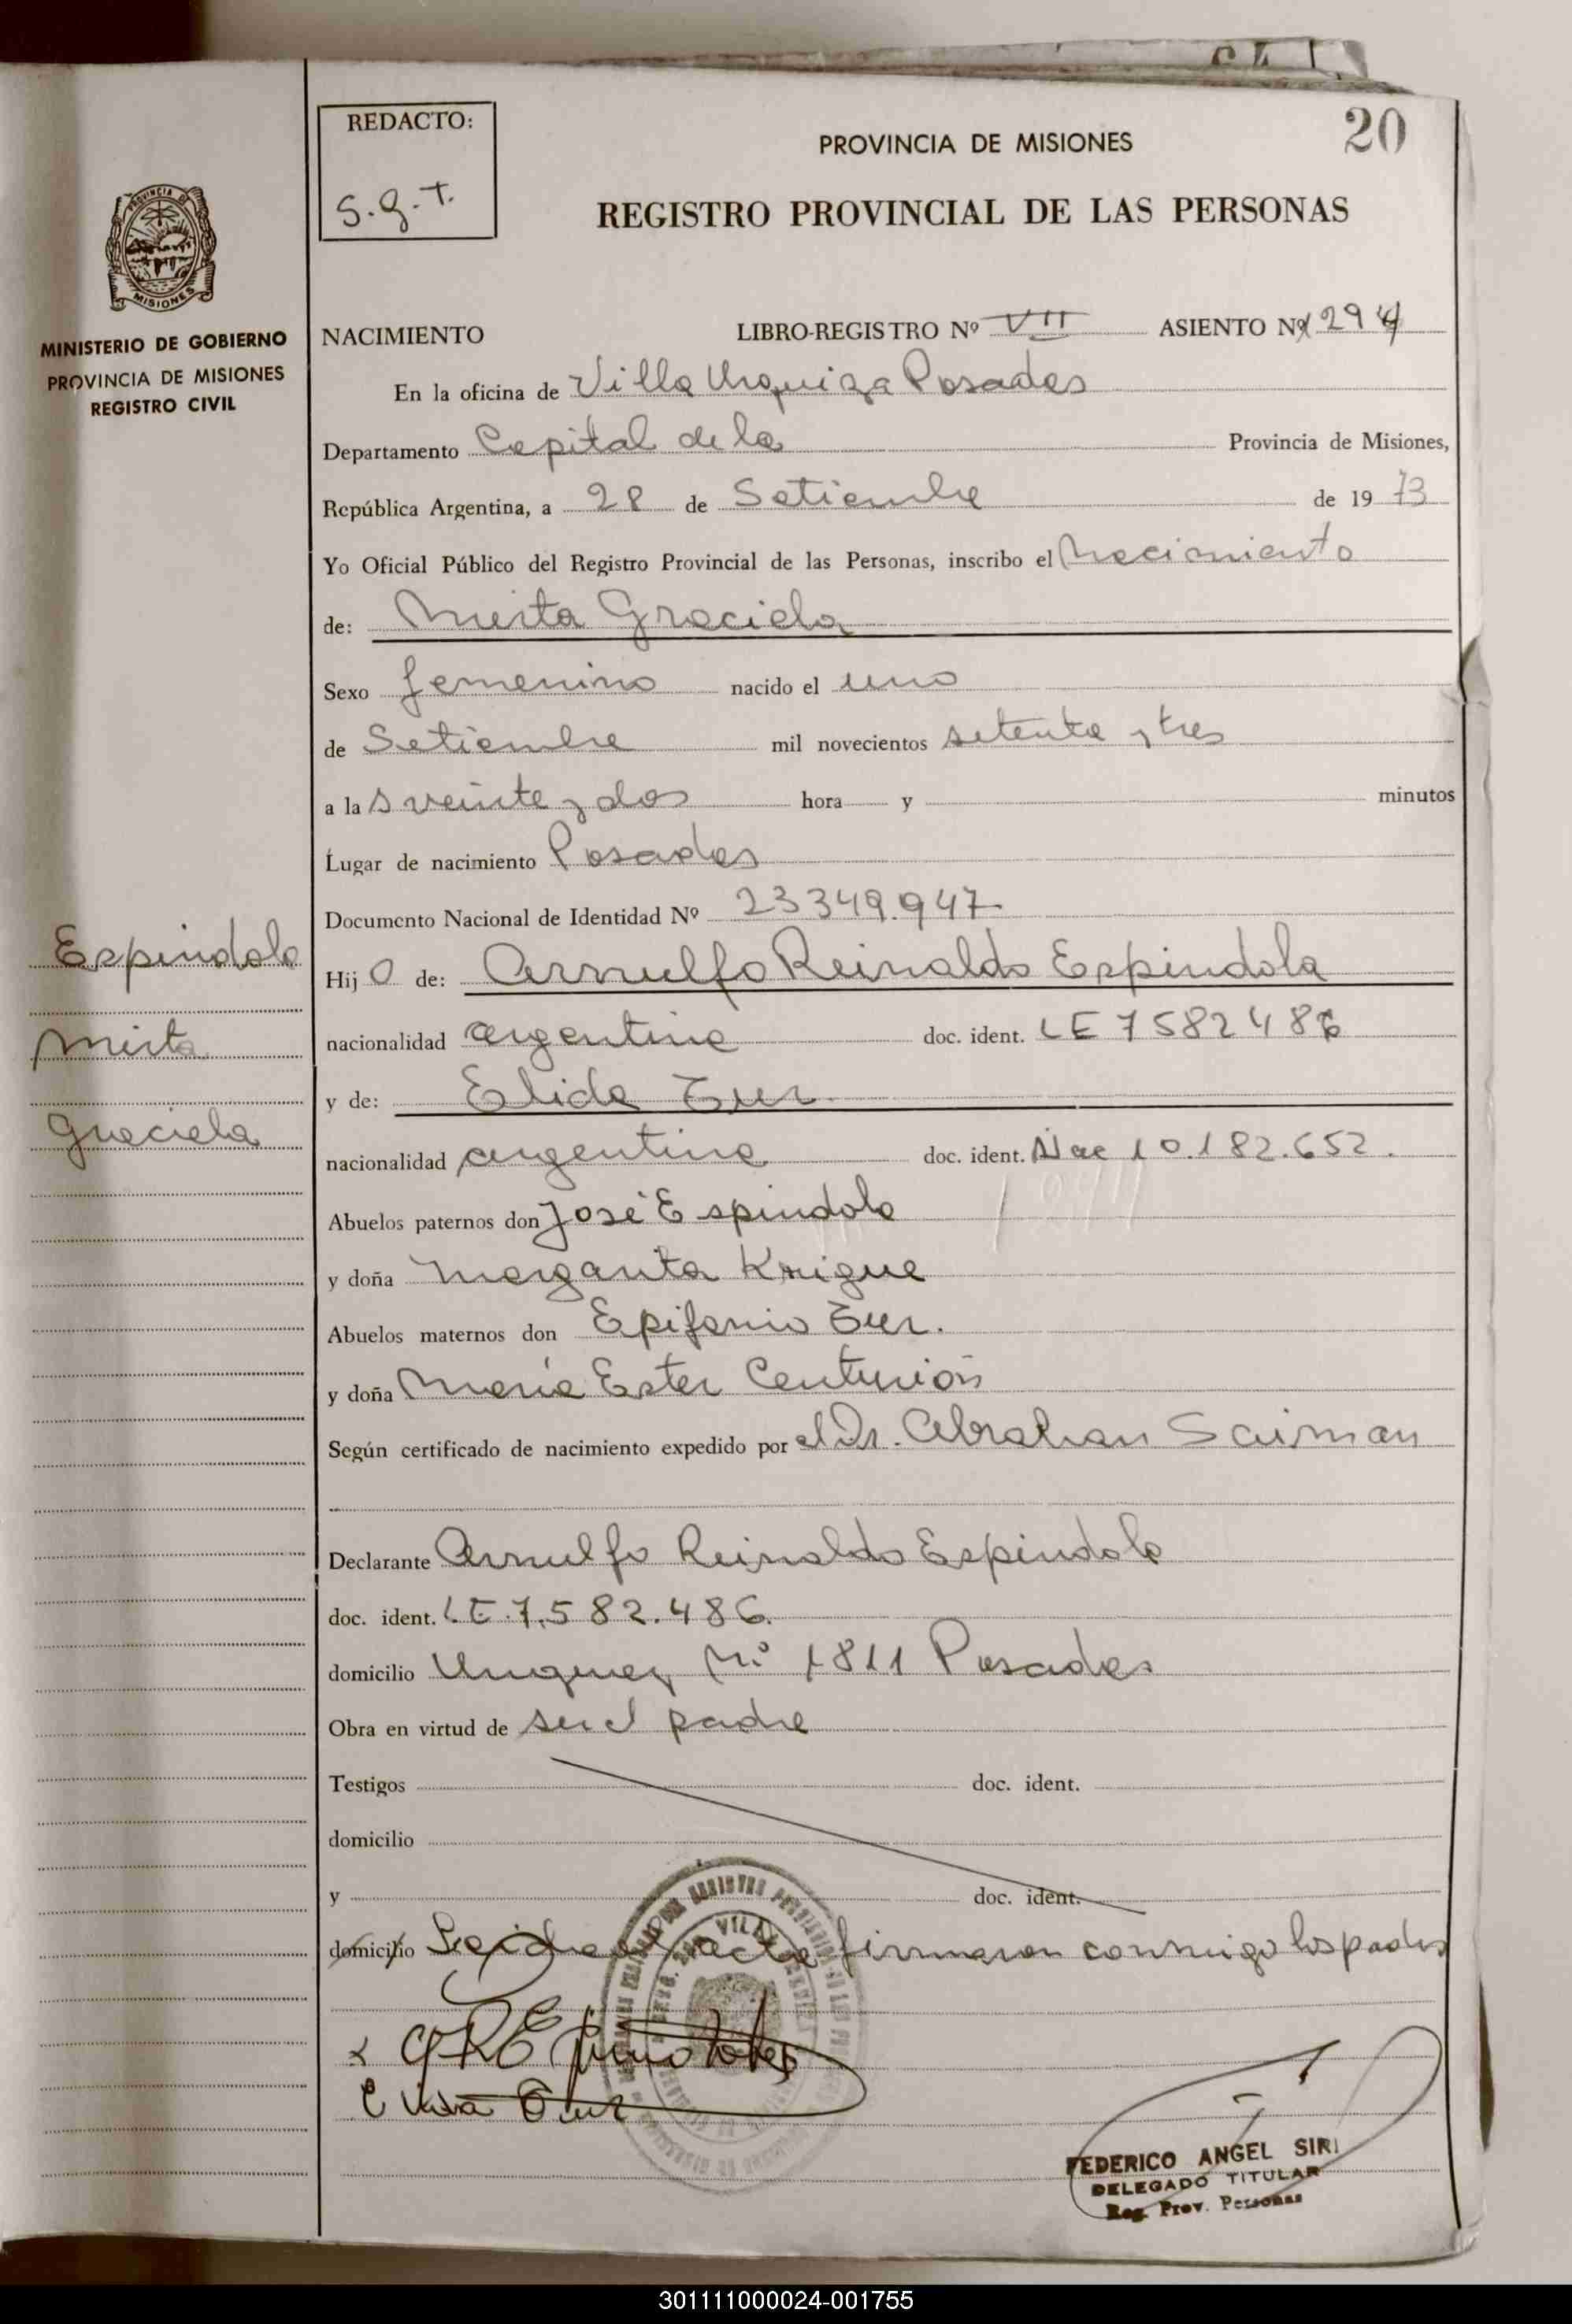 20
REDACTO:
S.g.T.
PROVINCIA DE MISIONES
REGISTRO PROVINCIAL DE LAS PERSONAS
PROVINCIA DE
MISIONES
MINISTERIO DE GOBIERNO
PROVINCIA DE MISIONES
REGISTRO CIVIL
NACIMIENTO LIBRO-REGISTRO Nº VII ASIENTO Nº 1294
En la oficina de Villa Urquiza Posadas
Departamento Capital de la Provincia de Misiones,
República Argentina, a 28 de Setiembre de 1973
Yo Oficial Público del Registro Provincial de las Personas, inscribo el Nacimiento
de: Mirta Graciela
Sexo femenino nacido el uno
de Setiembre mil novecientos setenta y tres
a las veinte y dos hora y minutos
Lugar de nacimiento Posadas
Documento Nacional de Identidad Nº 23349.947
Espindola
Mirta
Graciela
Hijo de: Arnulfo Reinaldo Espindola
nacionalidad argentina doc. ident. LE 7582486
y de: Elida
nacionalidad argentina doc. ident. Nac 10.182.652.
Abuelos paternos don José Espindola
y doña Margarita Krigue
Abuelos maternos don Epifanio
y doña María Ester Centurión
Según certificado de nacimiento expedido por el Dr. Abrahan Saiman
Declarante Arnulfo Reinaldo Espindola
doc. ident. LE.7.582.486.
domicilio Uruguay Nº 1811 Posadas
Obra en virtud de ser el padre
Testigos doc. ident.
domicilio
y doc. ident.
domicilio Leida el acta firmaron conmigo los padres
FEDERICO ANGEL SIRI
DELEGADO TITULAR
Reg. Prov. Personas
301111000024-001755